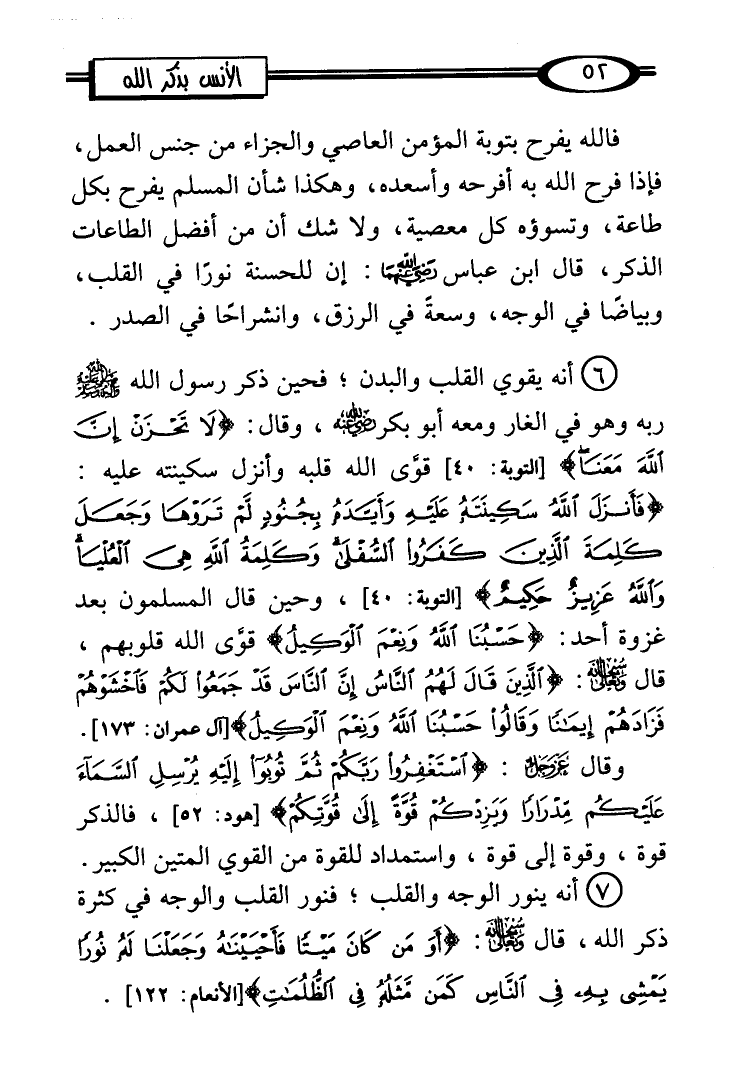 ٥٢
الأنس بذكر الله
فالله يفرح بتوبة المؤمن العاصي والجزاء من جنس العمل،
فإذا فرح الله به أفرحه وأسعده، وهكذا شأن المسلم يفرح بكل
طاعة، وتسوؤه كل معصية، ولا شك أن من أفضل الطاعات
الذكر، قال ابن عباس رضي الله عنهما : إن للحسنة نورًا في القلب،
وبياضًا في الوجه، وسعةً في الرزق، وانشراحًا في الصدر .
٦ أنه يقوي القلب والبدن ؛ فحين ذكر رسول الله ﷺ
ربه وهو في الغار ومعه أبو بكر رضي الله عنه ، وقال: ﴿لَا تَحْزَنْ إِنَّ
ٱللَّهَ مَعَنَا﴾ [التوبة: ٤٠] قوَّى الله قلبه وأنزل سكينته عليه :
﴿فَأَنزَلَ ٱللَّهُ سَكِينَتَهُۥ عَلَيْهِ وَأَيَّدَهُۥ بِجُنُودٍ لَّمْ تَرَوْهَا وَجَعَلَ
كَلِمَةَ ٱلَّذِينَ كَفَرُوا۟ ٱلسُّفْلَىٰ ۗ وَكَلِمَةُ ٱللَّهِ هِىَ ٱلْعُلْيَا ۗ
وَٱللَّهُ عَزِيزٌ حَكِيمٌ﴾ [التوبة: ٤٠] ، وحين قال المسلمون بعد
غزوة أحد: ﴿حَسْبُنَا ٱللَّهُ وَنِعْمَ ٱلْوَكِيلُ﴾ قوَّى الله قلوبهم ،
قال سبحانه وتعالى : ﴿ٱلَّذِينَ قَالَ لَهُمُ ٱلنَّاسُ إِنَّ ٱلنَّاسَ قَدْ جَمَعُوا۟ لَكُمْ فَٱخْشَوْهُمْ
فَزَادَهُمْ إِيمَٰنًا وَقَالُوا۟ حَسْبُنَا ٱللَّهُ وَنِعْمَ ٱلْوَكِيلُ﴾[آل عمران: ١٧٣].
وقال عز وجل : ﴿ٱسْتَغْفِرُوا۟ رَبَّكُمْ ثُمَّ تُوبُوٓا۟ إِلَيْهِ يُرْسِلِ ٱلسَّمَآءَ
عَلَيْكُم مِّدْرَارًا وَيَزِدْكُمْ قُوَّةً إِلَىٰ قُوَّتِكُمْ﴾ [هود: ٥٢] ، فالذكر
قوة ، وقوة إلى قوة ، واستمداد للقوة من القوي المتين الكبير.
٧ أنه ينور الوجه والقلب ؛ فنور القلب والوجه في كثرة
ذكر الله ، قال سبحانه وتعالى : ﴿أَوَ مَن كَانَ مَيْتًا فَأَحْيَيْنَٰهُ وَجَعَلْنَا لَهُۥ نُورًا
يَمْشِى بِهِۦ فِى ٱلنَّاسِ كَمَن مَّثَلُهُۥ فِى ٱلظُّلُمَٰتِ﴾[الأنعام: ١٢٢] .